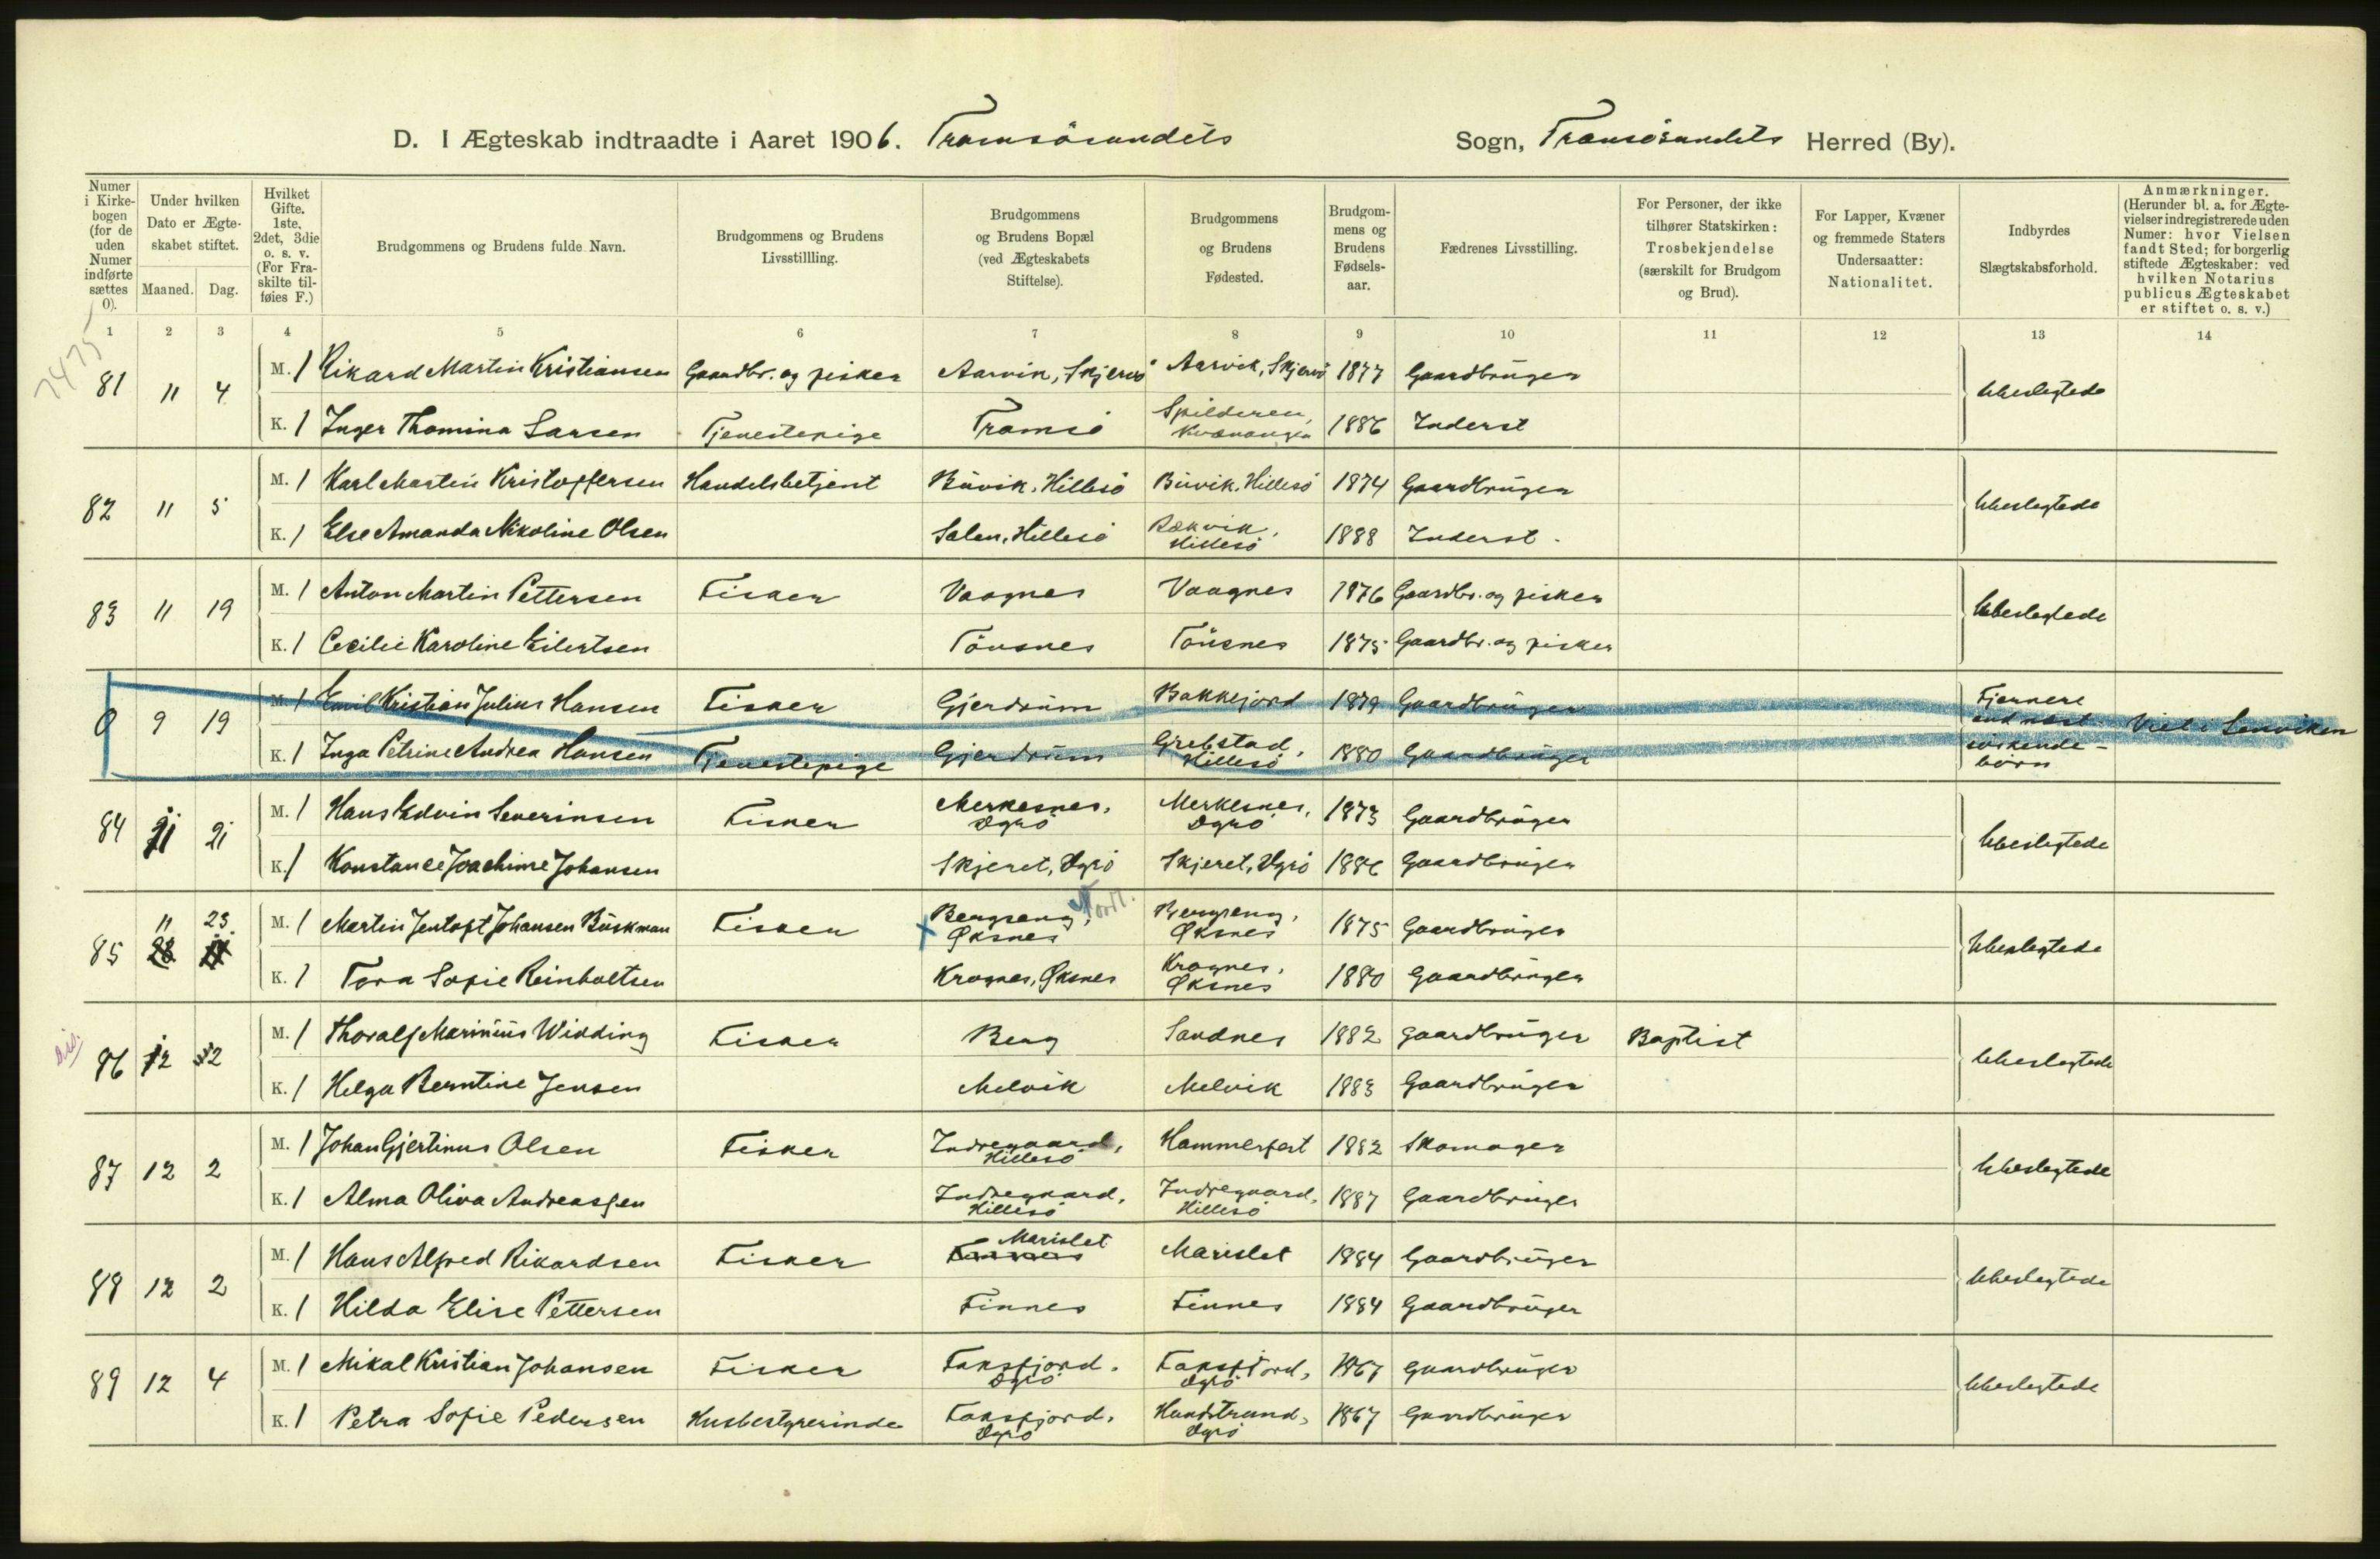 D. I Ægteskab indtraadte i Aaret 1906. Tromsösundets Sogn, Tromsösundets Herred (By).
Numer i Kirke-bogen (for de uden Numer indførte sættes 0).
Under hvilken Dato er Ægte-skabet stiftet.
Maaned. Dag.
Hvilket Gifte. 1ste, 2det, 3die o. s. v. (For Fra-skilte til-føies F.)
Brudgommens og Brudens fulde Navn.
Brudgommens og Brudens Livsstillling.
Brudgommens og Brudens Bopæl (ved Ægteskabets Stiftelse).
Brudgommens og Brudens Fødested.
Brudgom-mens og Brudens Fødsels-aar.
Fædrenes Livsstilling.
For Personer, der ikke tilhører Statskirken: Trosbekjendelse (særskilt for Brudgom og Brud).
For Lapper, Kvæner og fremmede Staters Undersaatter: Nationalitet.
Indbyrdes Slægtskabsforhold.
Anmærkninger. (Herunder bl. a. for Ægte-vielser indregistrerede uden Numer: hvor Vielsen fandt Sted; for borgerlig stiftede Ægteskaber: ved hvilken Notarius publicus Ægteskabet er stiftet o. s. v.)
1 2 3 4 5 6 7 8 9 10 11 12 13 14
7475
81 11 4 M. 1 Rikard Martin Kristiansen Gaardbr. og fisker Aarvik, Skjervö Aarvik, Skjervö 1877 Gaardbrüger Ubeslegtede
K. 1 Inger Thomina Larsen Tjenestepige Tromsö Spilderen, Kvænangen 1886 Inderst
82 11 5 M. 1 Karl Martin Kristoffersen Handelsbetjent Büvik, Hillesö Büvik, Hillesö 1874 Gaardbrüger Ubeslegtede
K. 1 Else Amanda Nikoline Olsen Salen, Hillesö Rækvik, Hillesö 1888 Inderst.
83 11 19 M. 1 Anton Martin Pettersen Fisker Vaagnes Vaagnes 1876 Gaardbr. og fisker Ubeslegtede
K. 1 Cecilie Karoline Eilertsen Tönsnes Tönsnes 1875 Gaardbr. og fisker
0 9 19 M. 1 Emil Kristian Julius Hansen Fisker Gjerdrüm Bakkejord 1879 Gaardbrüger Fjernere end næst- söskende-börn Viet i Lenviken
K. 1 Inga Petrine Andrea Hansen Tjenestepige Gjerdrüm Grebstad, Hillesö 1880 Gaardbrüger
84 11 21 M. 1 Hans Edvin Severinsen Fisker Merkesnes, Dyrö Merkesnes, Dyrö 1873 Gaardbrüger Ubeslegtede
K. 1 Konstance Joachime Johansen Skjeret, Dyrö Skjeret, Dyrö 1886 Gaardbrüger
85 11 23. M. 1 Martin Jentoft Johansen Büskman Fisker x Bergseng, Øksnes Nordl. Bergseng, Øksnes 1875 Gaardbrüger Ubeslegtede
K. 1 Tora Sofie Reinholtsen Kragnes, Øksnes Kragnes, Øksnes 1880 Gaardbrüger
86 12 2 M. 1 Thoralf Marinüs Widding Fisker Berg Sandnes 1882 Gaardbrüger Baptist Ubeslegtede
K. 1 Helga Berntine Jensen Melvik Melvik 1883 Gaardbrüger
87 12 2 M. 1 Johan Gjertinus Olsen Fisker Indregaard, Hillesö Hammerfest 1882 Skomager Ubeslegtede
K. 1 Alma Oliva Andreassen Indregaard, Hillesö Indregaard, Hillesö 1887 Gaardbrüger
88 12 2 M. 1 Hans Alfred Rikardsen Fisker Marislet Marislet 1884 Gaardbrüger Ubeslegtede
K. 1 Hilda Elise Pettersen Finnes Finnes 1884 Gaardbrüger
89 12 4 M. 1 Mikal Kristian Johansen Fisker Faksfjord, Dyrö Faksfjord, Dyrö 1867 Gaardbrüger Ubeslegtede
K. 1 Petra Sofie Pedersen Husbestyrerinde Faksfjord, Dyrö Hundstrand, Dyrö 1867 Gaardbrüger